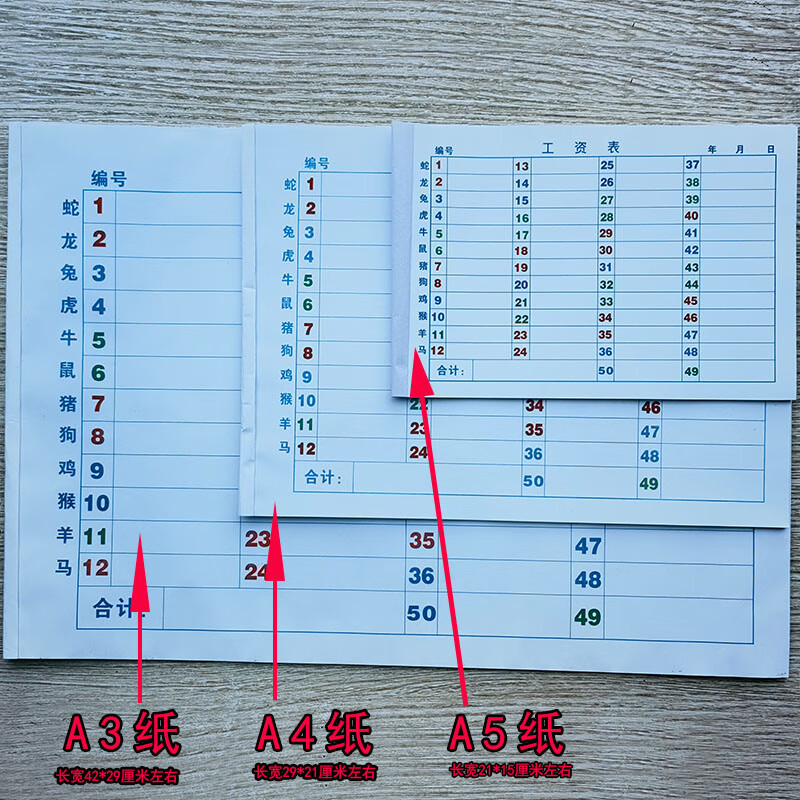 编号
蛇 1
龙 2
兔 3
虎 4
牛 5
鼠 6
猪 7
狗 8
鸡 9
猴 10
羊 11 23 35 47
马 12 24 36 48
合计: 50 49
编号
蛇 1
龙 2
兔 3
虎 4
牛 5
鼠 6
猪 7
狗 8
鸡 9
猴 10 22 34 46
羊 11 23 35 47
马 12 24 36 48
合计: 50 49
编号 工资表 年 月 日
蛇 1 13 25 37
龙 2 14 26 38
兔 3 15 27 39
虎 4 16 28 40
牛 5 17 29 41
鼠 6 18 30 42
猪 7 19 31 43
狗 8 20 32 44
鸡 9 21 33 45
猴 10 22 34 46
羊 11 23 35 47
马 12 24 36 48
合计: 50 49
A3纸
长宽42*29厘米左右
A4纸
长宽29*21厘米左右
A5纸
长宽21*15厘米左右